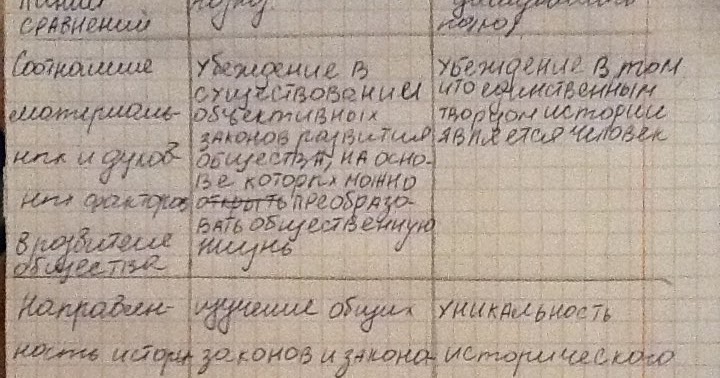 СРАВНЕНИЙ
подход
Соотношение
материаль-
ных и духов-
ных факторов
в развитие
общества
УБЕЖДЕНИЕ В
СУЩЕСТВОВАНИИ
ОБЪЕКТИВНЫХ
ЗАКОНОВ РАЗВИТИЯ
ОБЩЕСТВА, НА ОСНО-
ВЕ КОТОРЫХ МОЖНО
ОТКРЫТЬ ПРЕОБРАЗО-
ВАТЬ ОБЩЕСТВЕННУЮ
ЖИЗНЬ
УБЕЖДЕНИЕ В ТОМ
ЧТО ЕДИНСТВЕННЫМ
ТВОРЦОМ ИСТОРИИ
ЯВЛЯЕТСЯ ЧЕЛОВЕК
Направлен-
ность истори
изучение общих
законов и законо-
УНИКАЛЬНОСТЬ
исторического